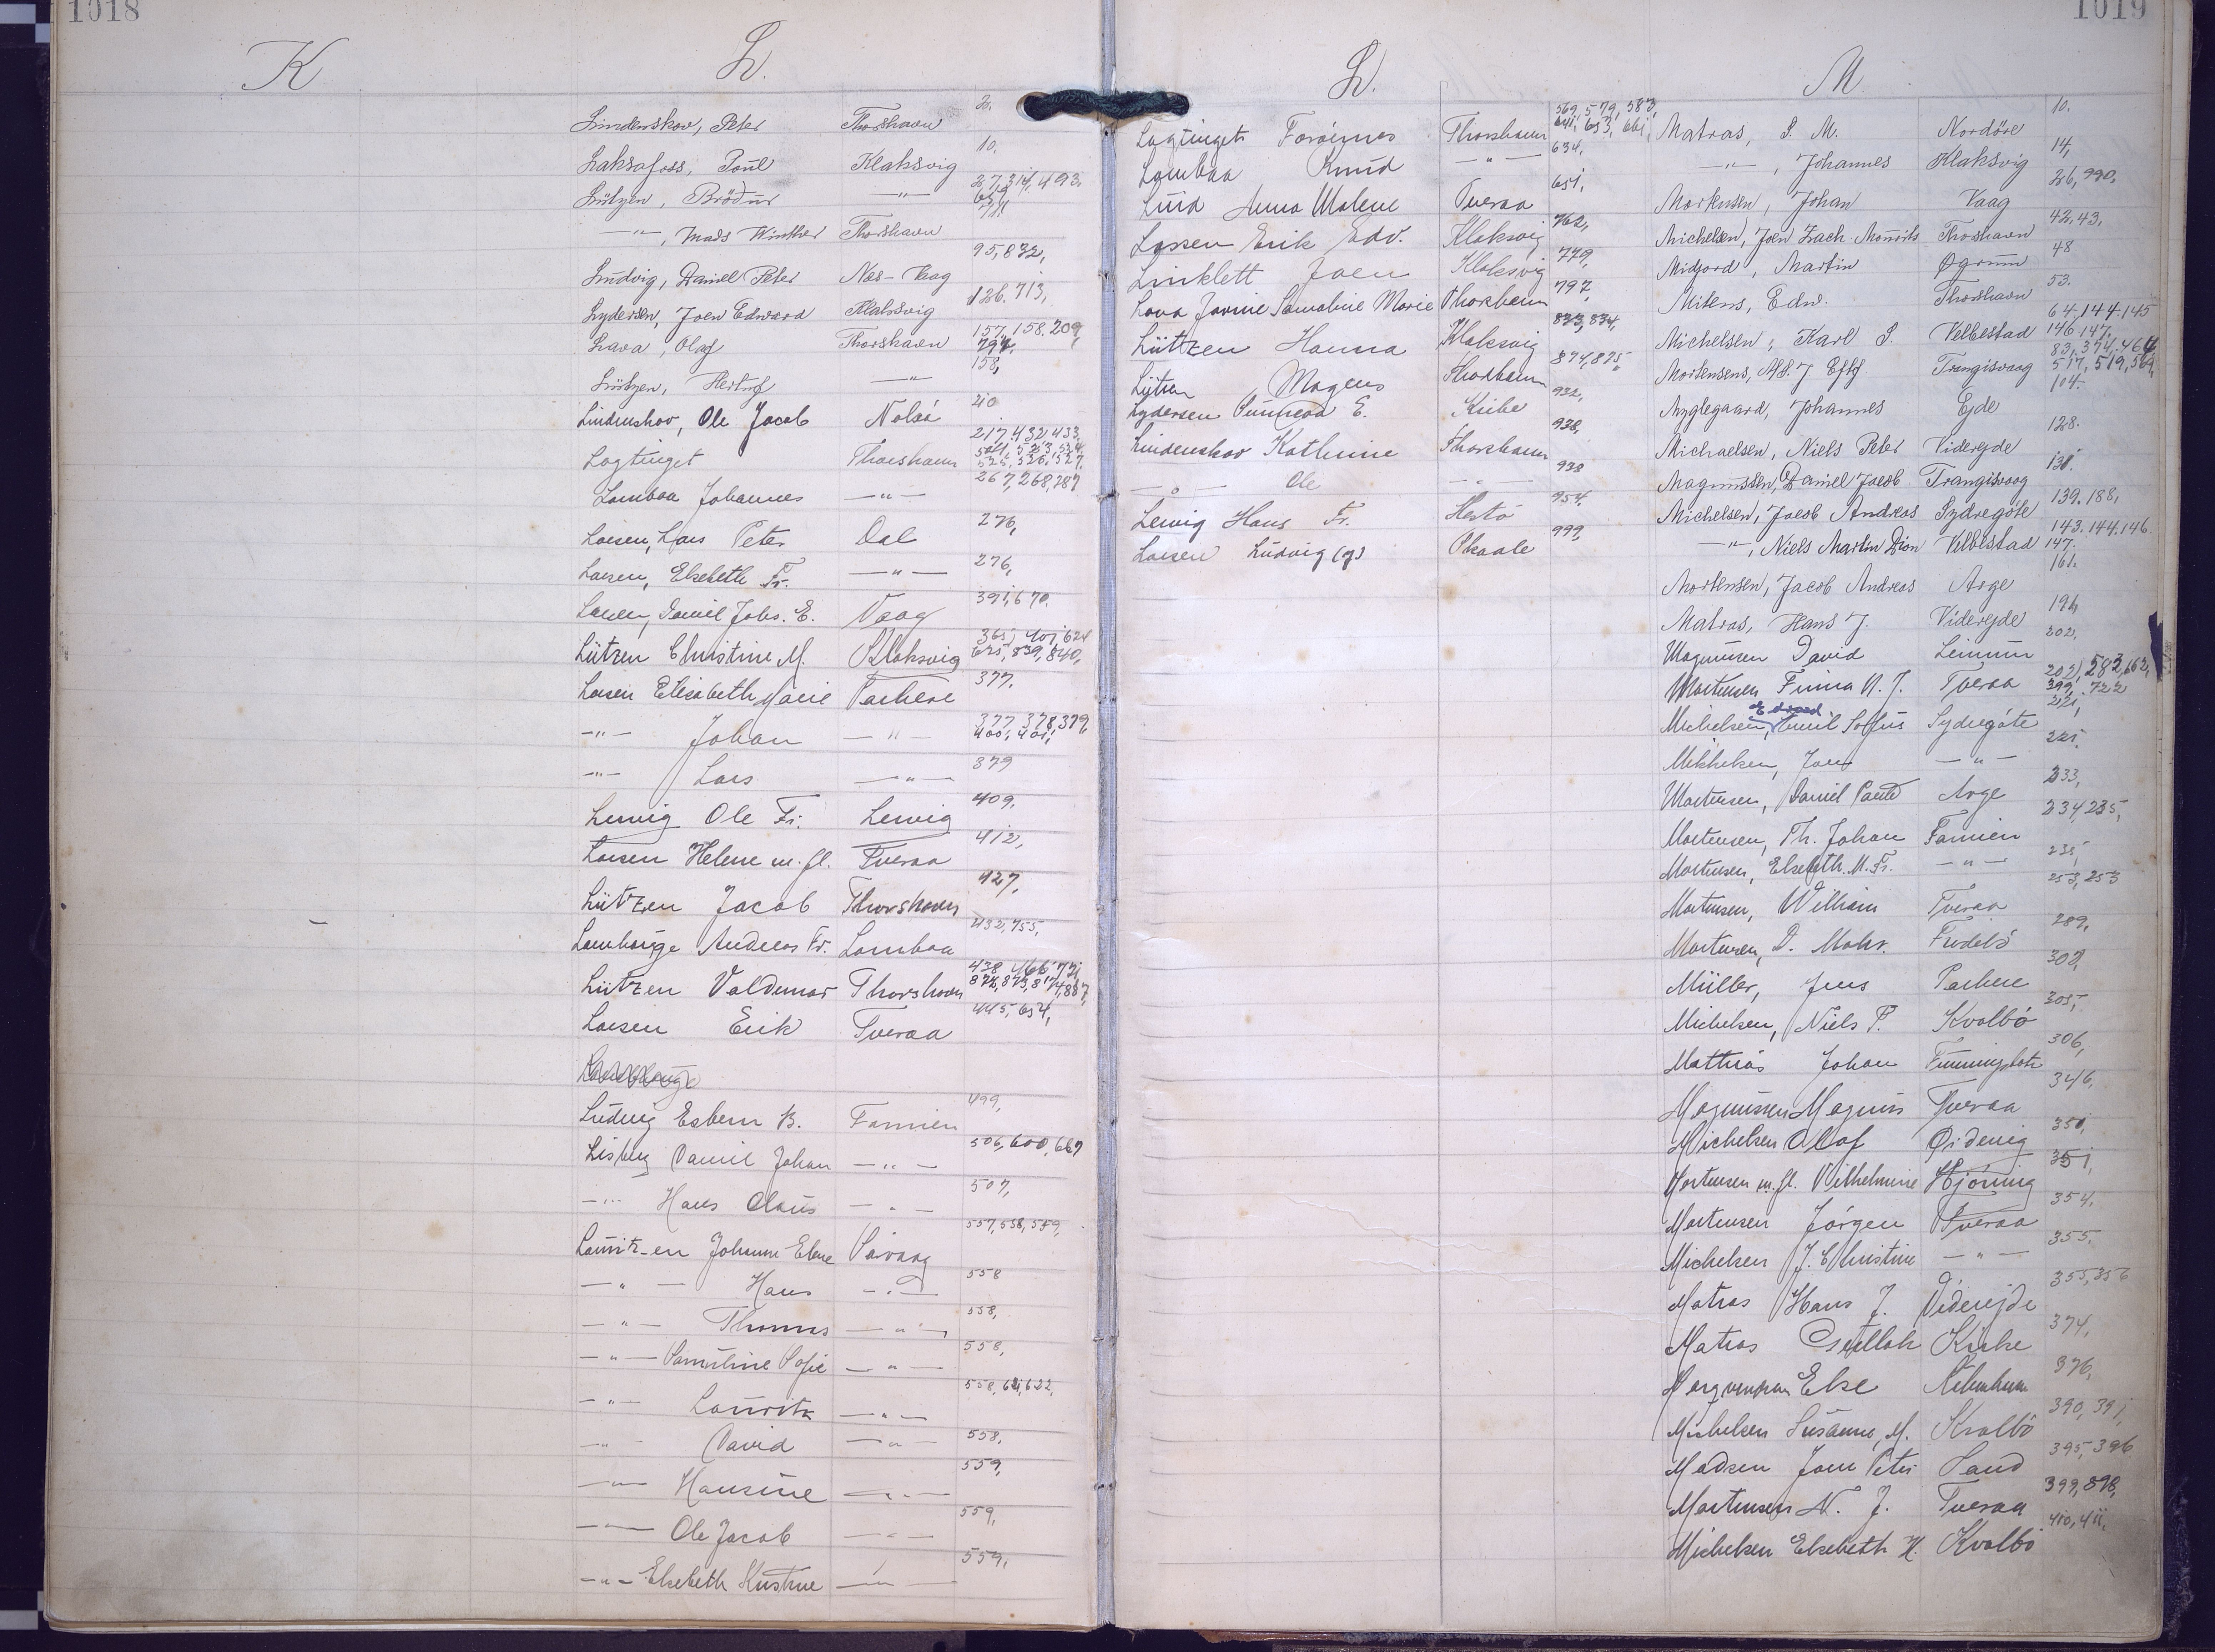 1018
K
L.
Lindenskov, Peter Thorshavn 2.
Laksafoss, Poul Klaksvig 10.
Lützen, Brödur —"— 27, 314, 493.
—"—, Mads Winther Thorshavn
Ludvig, Daniel Peter Næs-Vaag 95, 832,
Lydersen, Joen Edward Klaksvig 126. 713,
Lava, Olaf Thorshavn 157, 158, 209, 797,
Lützen, Herluf —"— 158,
Lindenskov, Ole Jacob Nolsö 210
Lagtinget Thorshavn 217, 432, 433, 501, 523, 524, 525, 526, 527,
Lamboa Johannes —"— 267, 268, 287
Larsen, Lars Peter Dal 276,
Larsen, Elsebeth Fr. —"— 276,
Larsen, Daniel Johs. E. Vaag 391, 670.
Lützen Christine M. Klaksvig 365, 401, 624 625, 839, 840,
Larsen Elisabeth Marie Porkere 377,
—"— Johan —"— 377, 378, 379, 400, 401,
—"— Lars —"— 379
Lervig Ole Fr. Lervig 409,
Larsen Helene m. fl. Tveraa 412,
Lützen Jacob Thorshavn 427,
Lamhauge Andreas Fr. Lamboa 432, 755,
Lützen Valdemar Thorshavn 438, 466, 771, 872, 873, 874, 887,
Larsen Erik Tveraa 445, 654,
Ludvig Esbern B. Famien 499,
Lisberg Daniel Johan —"— 506, 600, 667
—"— Hans Claus —"— 507,
Lauritzen Johanne Elene Sövaag 557, 558, 559,
—"— Hans —"— 558
—"— Thomas —"— 558,
—"— Samuline Sofie —"— 558,
—"— Lauritz —"— 558, 621, 622,
—"— David —"— 558,
—"— Hansine —"— 559,
—"— Ole Jacob —"— 559,
—"— Elsebeth Kristine —"— 559,
1019
L.
Lagtinget Faröernes Thorshavn 569, 579, 583, 641, 653, 661,
Lamboa Knud —"— 634,
Luid Anna Malene Tveraa 651,
Larsen Erik Edv. Klaksvig 762,
Linklett Joen Klaksvig 779,
Lava Javine Samaline Marie Thorshavn 797,
Lützen Hanna Klaksvig 833, 834,
Lützen Mogens Thorshavn 874, 875,
Lydersen E. Kirke 932,
Lindenskov Kathrine Thorshavn 938,
—"— Ole —"— 938
Lervig Hans Fr. Hestö 954,
Larsen Ludvig (g) Skaale 999,
M
Matras, S. M. Nordöre 10.
—"—, Johannes Klaksvig 14,
Mortensen, Johan Vaag 26, 990,
Michelsen, Joen Zach. Mourits Thorshavn 42, 43,
Midjord, Martin Øgrum 48
Mitens, Edw. Thorshavn 53.
Michelsen, Karl S. Velbestad 64, 144, 145 146 147,
Mortensens, Eftf Trangisvaag 83, 374, 464 517, 519, 564,
Myglegaard, Johannes Ejde 104.
Michaelsen, Niels Peter Viderejde 128.
Magnussen, Daniel Jacob Trangisvaag 131.
Michelsen, Jacob Andreas Sydregöte 139. 188,
—"—, Niels Martin Dion Velbestad 143. 144. 146. 147.
Mortensen, Jacob Andreas Arge 161.
Matras, Hans J. Viderejde 191,
Magnussen David Leinum 202,
Mortensen Finna N. J. Tveraa 202, 582, 662, 399, 722
Michelsen, Edvard Emil Soffus Sydregöte 221,
Mikkelsen, Joen —"— 221,
Mortensen, Daniel Pauli Arge 233,
Mortensen, Th. Johan Famien 234, 235,
Mortensen, Elsebeth M. Fr. —"— 235,
Mortensen, William Tveraa 253, 253
Mortensen, D. Mohr. Fuglö 289,
Müller, Jens Porkere 302,
Michelsen, Niels P. Kvalbö 305,
Matthias Johan Funningsbotn 306,
Magnussen Magnus Tveraa 346,
Michelsen Olaf Öridevig 350,
Mortensen m. fl. Vilhelmine Hjöring 351,
Mortensen Jörgen Tveraa 354,
Michelsen J. Christine —"— 355,
Matras Hans J. Viderejde 355, 356
Matras Kirke 374,
Else 376,
Michelsen Susanne M. Kvalbö 390, 391,
Madsen Joen Peter Sand 395, 396
Mortensen N. J. Tveraa 399, 898,
Michelsen Elsebeth H. Kvalbö 410, 411,